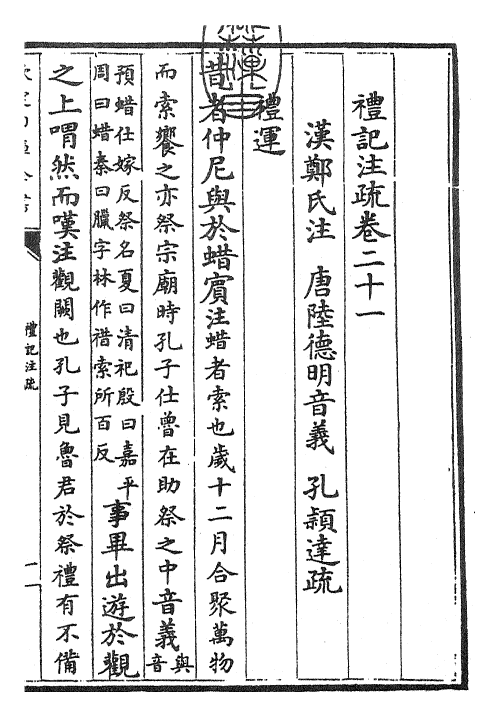 禮記注疏卷二十一
漢鄭氏注 唐陸德明音義 孔穎達疏
禮運
昔者仲尼與於蜡賓注蜡者索也歲十二月合聚萬物
而索饗之亦祭宗廟時孔子仕魯在助祭之中音義與音
預蜡仕嫁反祭名夏曰清祀殷曰嘉平
周曰蜡秦曰臘字林作䄍索所百反
事畢出遊於觀
之上喟然而嘆注觀闕也孔子見魯君於祭禮有不備
禮記注疏
一